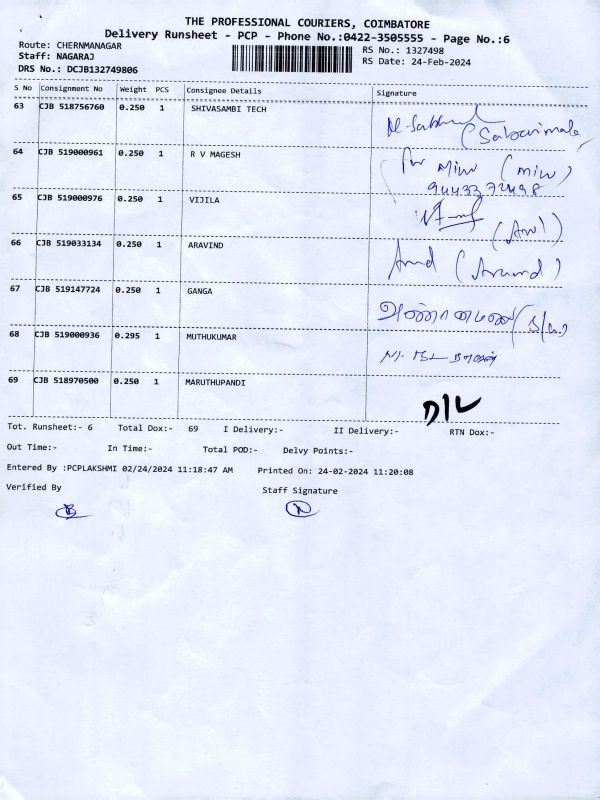 THE PROFESSIONAL COURIERS, COIMBATORE
Delivery Runsheet - PCP - Phone No.:0422-3505555 - Page No.:6
Route: CHERNMANAGAR
RS No.: 1327498
Staff: NAGARAJ
RS Date: 24-Feb-2024
DRS No.: DCJB132749806
S No Consignment No Weight PCS Consignee Details Signature
63 CJB 518756760 0.250 1 SHIVASAMBI TECH
64 CJB 519000961 0.250 1 R V MAGESH
9443372498
65 CJB 519000976 0.250 1 VIJILA
66 CJB 519033134 0.250 1 ARAVIND (Aravind)
67 CJB 519147724 0.250 1 GANGA
68 CJB 519000936 0.295 1 MUTHUKUMAR
69 CJB 518970500 0.250 1 MARUTHUPANDI D/L
Tot. Runsheet:- 6 Total Dox:- 69 I Delivery:- II Delivery:- RTN Dox:-
Out Time:- In Time:- Total POD:- Delvy Points:-
Entered By :PCPLAKSHMI 02/24/2024 11:18:47 AM Printed On: 24-02-2024 11:20:08
Verified By Staff Signature
B N